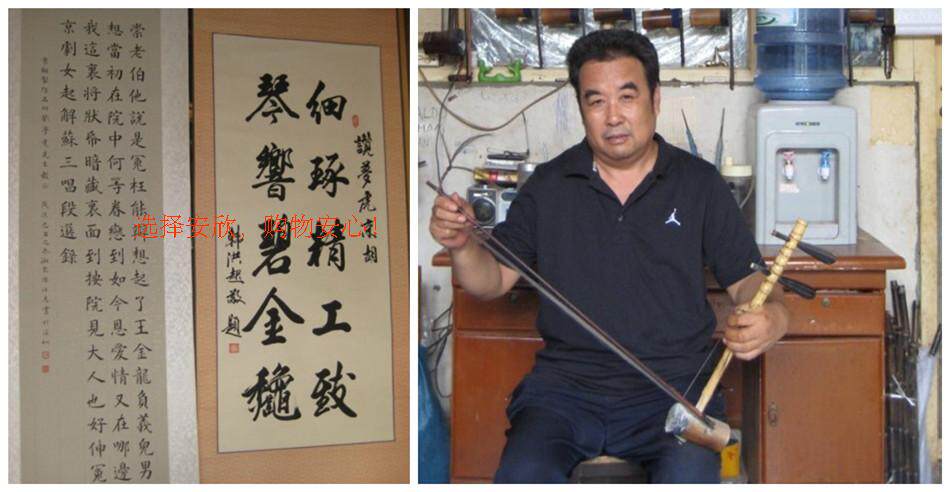 崇老伯他說是冤枉能想起了王金龍負義兒男
想當初在院中何等眷戀到如今恩愛情又在哪邊
我這裏將狀帋暗藏裏面到按院見大人也好伸冤
京劇女起解蘇三唱段選錄
讚夢虎京胡
細琢精工致
琴響碧金
洪超敬題
选择安欣，购物安心!